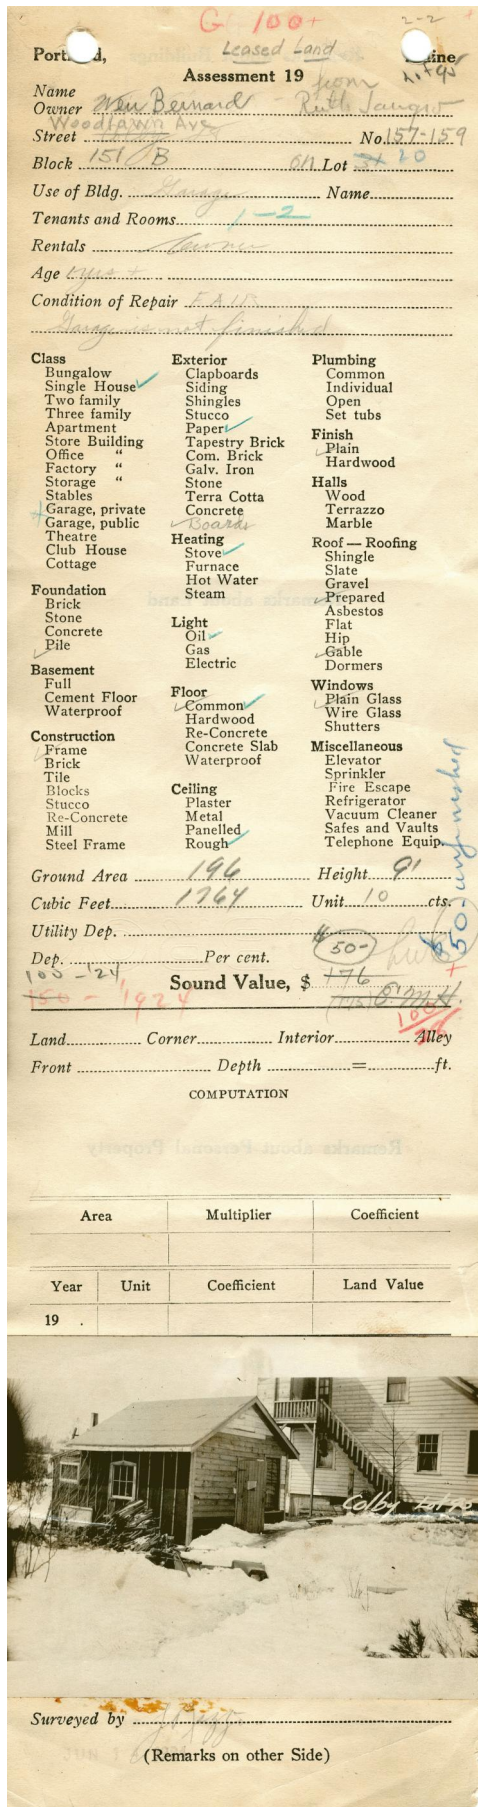 G. 100+
2-2 +
Leased Land
Portland, Maine
Assessment 19
from
Name
Owner Wm Bernard - Ruth
Woodlawn Ave
Street No. 157-159
Block 151 B on Lot 20
Use of Bldg. Garage Name
Tenants and Rooms 1-2
Rentals Owner
Age yrs +
Condition of Repair FAIR
Garage is not finished
Class
Bungalow
Single House ✓
Two family
Three family
Apartment
Store Building
Office "
Factory "
Storage "
Stables
+ Garage, private
Garage, public
Theatre
Club House
Cottage
Foundation
Brick
Stone
Concrete
✓ Pile
Basement
Full
Cement Floor
Waterproof
Construction
✓ Frame
Brick
Tile
Blocks
Stucco
Re-Concrete
Mill
Steel Frame
Exterior
Clapboards
Siding
Shingles
Stucco
Paper ✓
Tapestry Brick
Com. Brick
Galv. Iron
Stone
Terra Cotta
Concrete
✓ Boards
Heating
Stove ✓
Furnace
Hot Water
Steam
Light
Oil ✓
Gas
Electric
Floor
✓ Common ✓
Hardwood
Re-Concrete
Concrete Slab
Waterproof
Ceiling
Plaster
Metal
Panelled
Rough ✓
Plumbing
Common
Individual
Open
Set tubs
Finish
✓ Plain
Hardwood
Halls
Wood
Terrazzo
Marble
Roof — Roofing
Shingle
Slate
Gravel
✓ Prepared
Asbestos
Flat
Hip
✓ Gable
Dormers
Windows
✓ Plain Glass
Wire Glass
Shutters
Miscellaneous
Elevator
Sprinkler
Fire Escape
Refrigerator
Vacuum Cleaner
Safes and Vaults
Telephone Equip.
$50- unfinished
Ground Area 196 Height 9'
Cubic Feet 1764 Unit 10 cts.
Utility Dep.
$50-
Dep. Per cent.
100 - '24
Sound Value, $ 176
150 - 1924
(175) O'M H.
100
Land Corner Interior Alley
Front Depth = ft.
COMPUTATION
Area Multiplier Coefficient
Year Unit Coefficient Land Value
19 .
Colby Lot 20
Surveyed by
(Remarks on other Side)